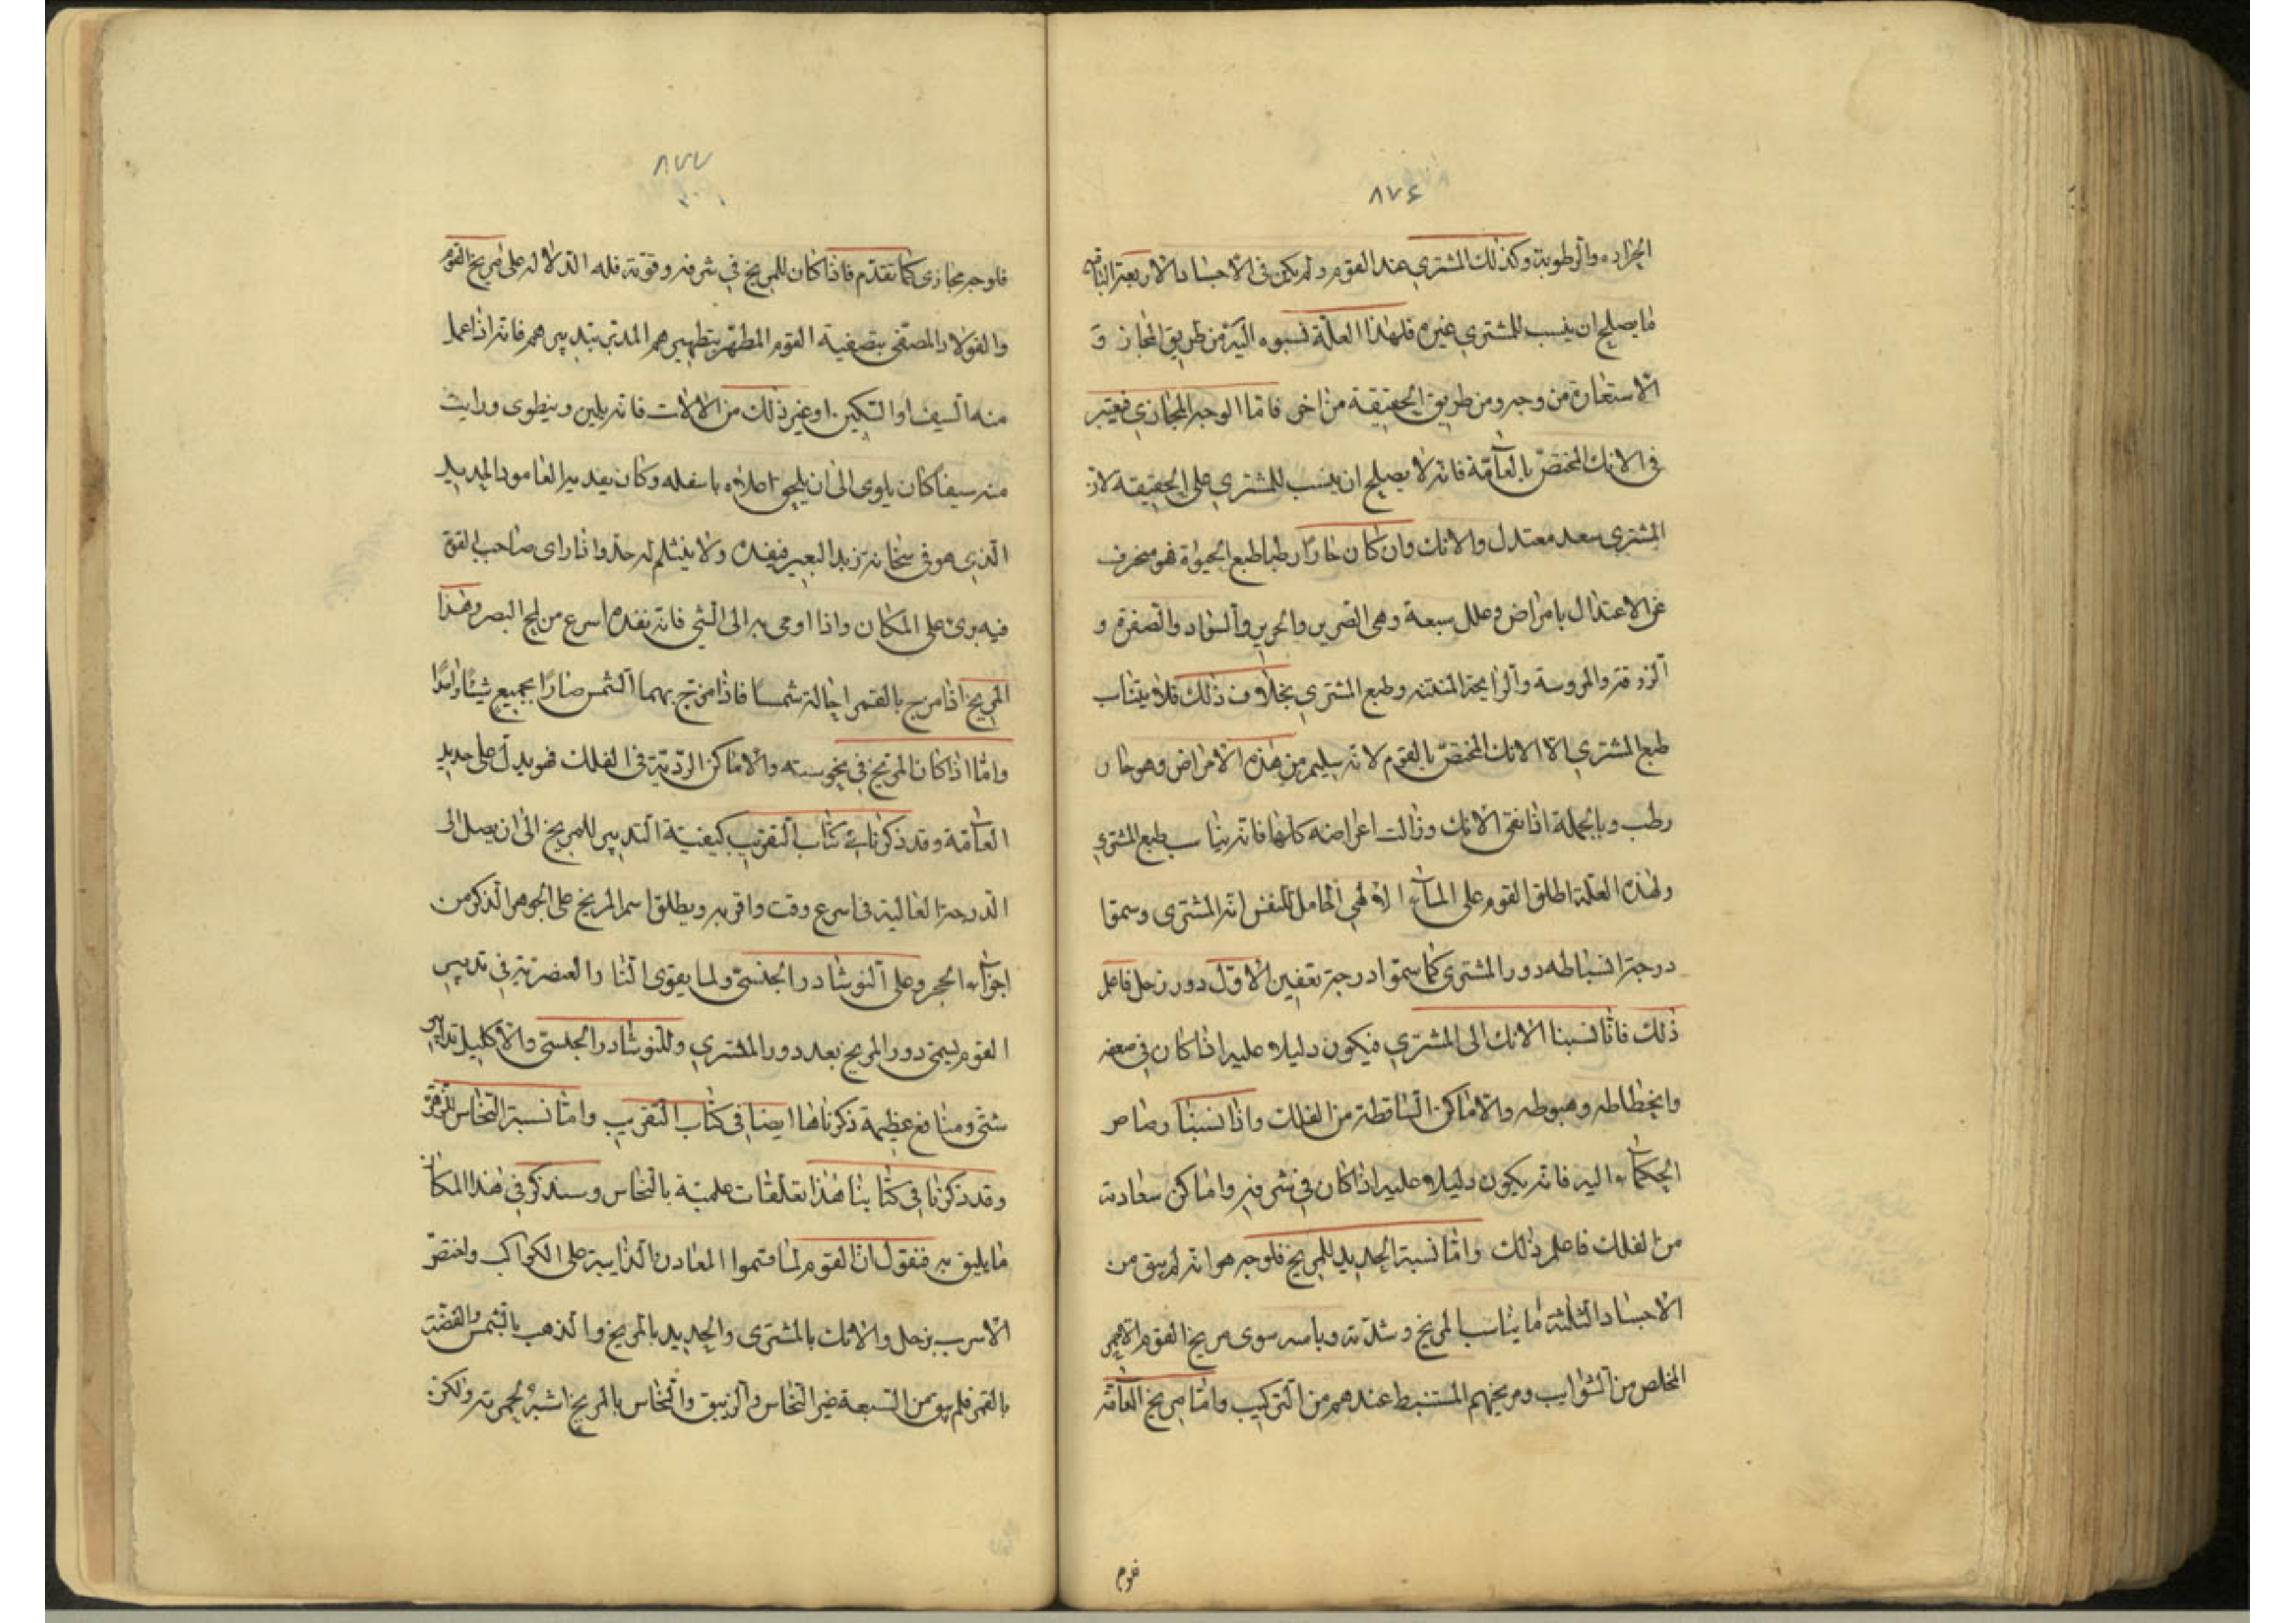 ٨٧٦
الحرارة والرطوبة وكذلك المشتري عند القوم ولم يكن في الاجساد الاربعة الباقية
ما يصلح ان ينسب للمشتري غيره فلهذا العلّة نسبوه اليه من طريق المجاز و
الاستعارة من وجه ومن طريق الحقيقة من اخر فامّا الوجه المجازي فيعتبر
في الانك المختصّ بالعامّة فانه لا يصلح ان ينسب للمشتري على الحقيقة لان
المشتري سعد معتدل والانك وان كان حارّا رطبا طبع الحيوة فهو منحرف
عن الاعتدال بامراض وعلل سبعة وهي الصرير والخرير والسّواد والصفرة و
الزرقة والمروسة والرايحة المنتنه وطبع المشتري بخلاف ذلك فلا يتناب
طبع المشتري الّا الانك المختصّ بالقوم لانه سليم من هذه الامراض وهو حار
رطب وبالجملة اذا نقى الانك وزالت اعراضه كلها فانه يناسب طبع المشتري
ولهذه العلّة اطلق القوم على الماء الالهي الحامل للنفس انّه المشترى وسمّوا
درجة انسباطه دور المشترى كما سمّوا درجة تعفين الاوّل دور زحل فاعلم
ذلك فاذا نسبنا الانك الى المشتري فيكون دليلا عليه اذا كان في ضعفه
وانحطاطه وهبوطه والاماكن السّاقطة من الفلك واذا نسبنا رصاص
الحكماء اليه فانه يكون دليلا عليه اذا كان في شرفه واماكن سعادته
من الفلك فاعلم ذلك وامّا نسبة الحديد للمريخ فلوجه هو انه لم يبق من
الاجساد الثلثة ما يناسب المريخ وشدّته وباسه سوى مريخ القوم الاحمر
المخلص من الشّوايب ومريخهم المستنبط عندهم من التركيب وامّا مريخ العامّة
فلوجه مجازى كما تقدّم فاذا كان للمريخ في شرفه وقوّته فله الدّلالة على مريخ القوم
والفولاد المصفّى بتصفية القوم المطهّر بتطهيرهم المدبّر بتدبيرهم فانه اذا عمل
منه السيف او السّكين او غير ذلك من الالات فانه يلين وينطوى ورايت
منه سيفا كان يلوى الى ان يلحق اعلاه باسفله وكان يقدّ به العامود الحديد
الّذي هو في سخانة زند البعير فيقده ولا ينثلم له حدّ واذا راى صاحب القوة
فيه برئ على المكان واذا اوحى به الى الشي فانه يقده اسرع من لمح البصر وهذا
المريخ اذا مزج بالقمر احاله شمسا فاذا مزج بهما الشمس صارا بجميع شيئا واحدًا
وامّا اذا كان المريخ في نحوسته والاماكن الرديّة في الفلك فهو يدل على حديد
العامّة وقد ذكرنا في كتاب التقريب كيفية التدبير للمريخ الى ان يصل الى
الدرجة العالية في اسرع وقت واقربه ويطلق اسم المريخ على الجوهر الذكر من
اجزاء الحجر وعلى النوشادر الجلستى ولما يقوى النار العنصرية في تدبير
القوم يسمى دور المريخ بعد دور المشتري وللنوشادر الجلستى والاكليل تدابير
شتّى ومنافع عظيمة ذكرناها ايضا في كتاب التقريب وامّا نسبة النحاس للزهرة
وقد ذكرنا في كتابنا هذا تعلّقات علميّة بالنحاس وسنذكر في هذا المكان
ما يليق به فنقول انّ القوم لمّا قسموا المعادن الذّايبة على الكواكب واختصّ
الاسرب بزحل والانك بالمشترى والحديد بالمريخ والذهب بالشمس والفضّة
بالقمر فلم يبق من السّبعة غير النحاس والزيبق والنّحاس بالمريخ اشبه لحمرته ولكن
فلوم
٨٧٧